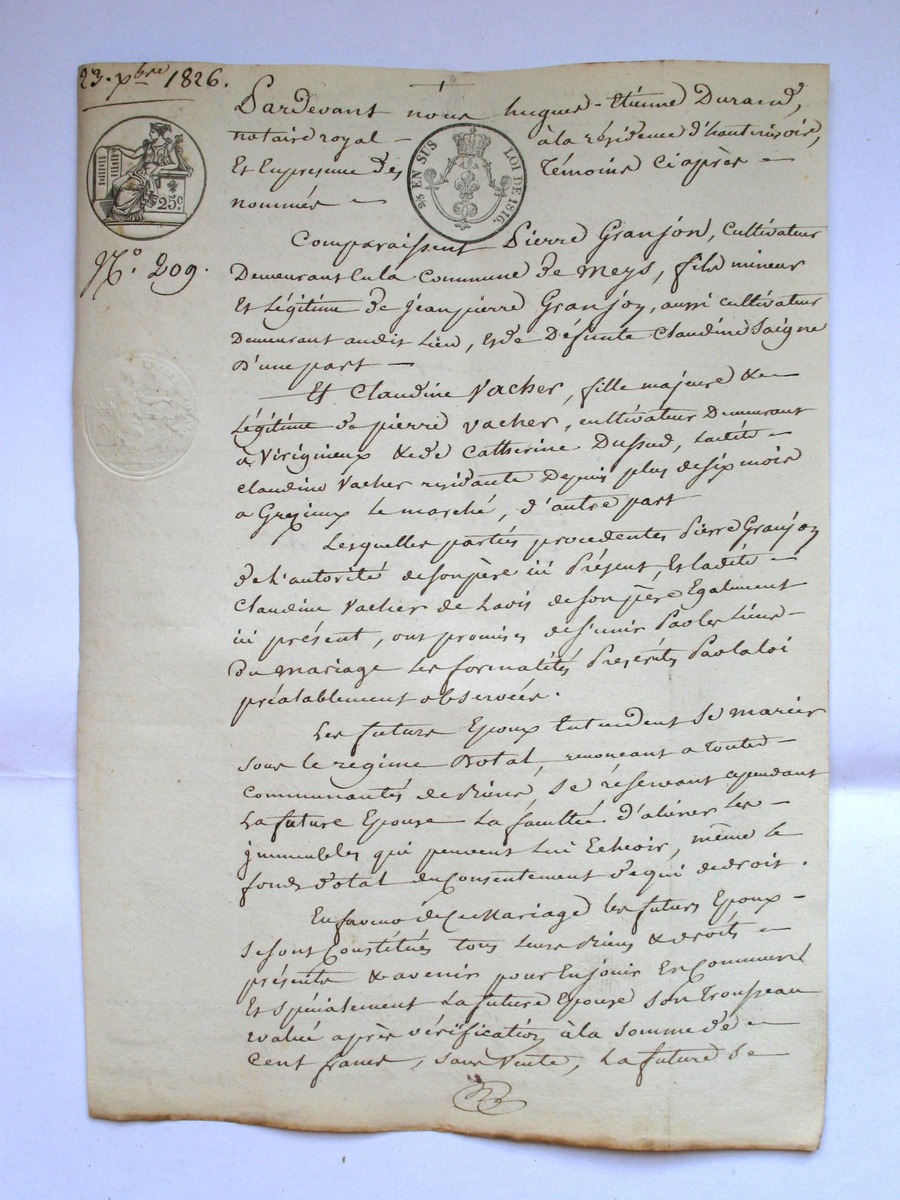 23. xbre 1826.
Pardevant nous hugues-Etienne Durand,
notaire royal — à la résidence d'hauterivoire,
Et En presence des Témoins Ciaprès —
nommés —
25 EN SUS LOI DE 1816.
25c
N° 209.
Comparaissent Pierre Granjon, cultivateur
Demeurant En la Commune de Meys, fils mineur
Et Légitime de jeanpierre Granjon, aussi cultivateur
Demeurant audit Lieu, et de Défunte Claudine Saigne
D'une part —
— Et Claudine Vacher, fille majeure & —
Légitime de pierre Vacher, cultivateur Demeurant
a Virigneux & de Catherine Dussud, Ladite —
Claudine Vacher residante Depuis plus de six mois
a Grezieux Le marché, d'autre part
Lesquelles parties procedentes Pierre Granjon
de L'autorité de son père ici Présent, Et Ladite —
Claudine Vacher de Lavis de son père Egalement
ici présent, ont promises de s'unir Par les Liens —
Du mariage Les formalités Presentes Par la loi
préalablement observées.
Les futurs Epoux Entendent Se marier
sous le régime Dotal, renonçant a toutes —
Communautés de Biens Se réservant cependant
La future Epouse La faculté d'aliéner Les —
jmmeubles qui peuvent Lui Echeoir, même Le
fonds Dotal du Consentement de qui de droit.
En faveur de Ce Mariage les futurs Epoux —
Se sont Constitués tous Leurs Biens & droits —
présents & avenir pour En jouir En Commun
Et spécialement La future Epouse Son Trousseau
evalué après vérification à la somme de —
Cent francs, sans Vente, La future Se —